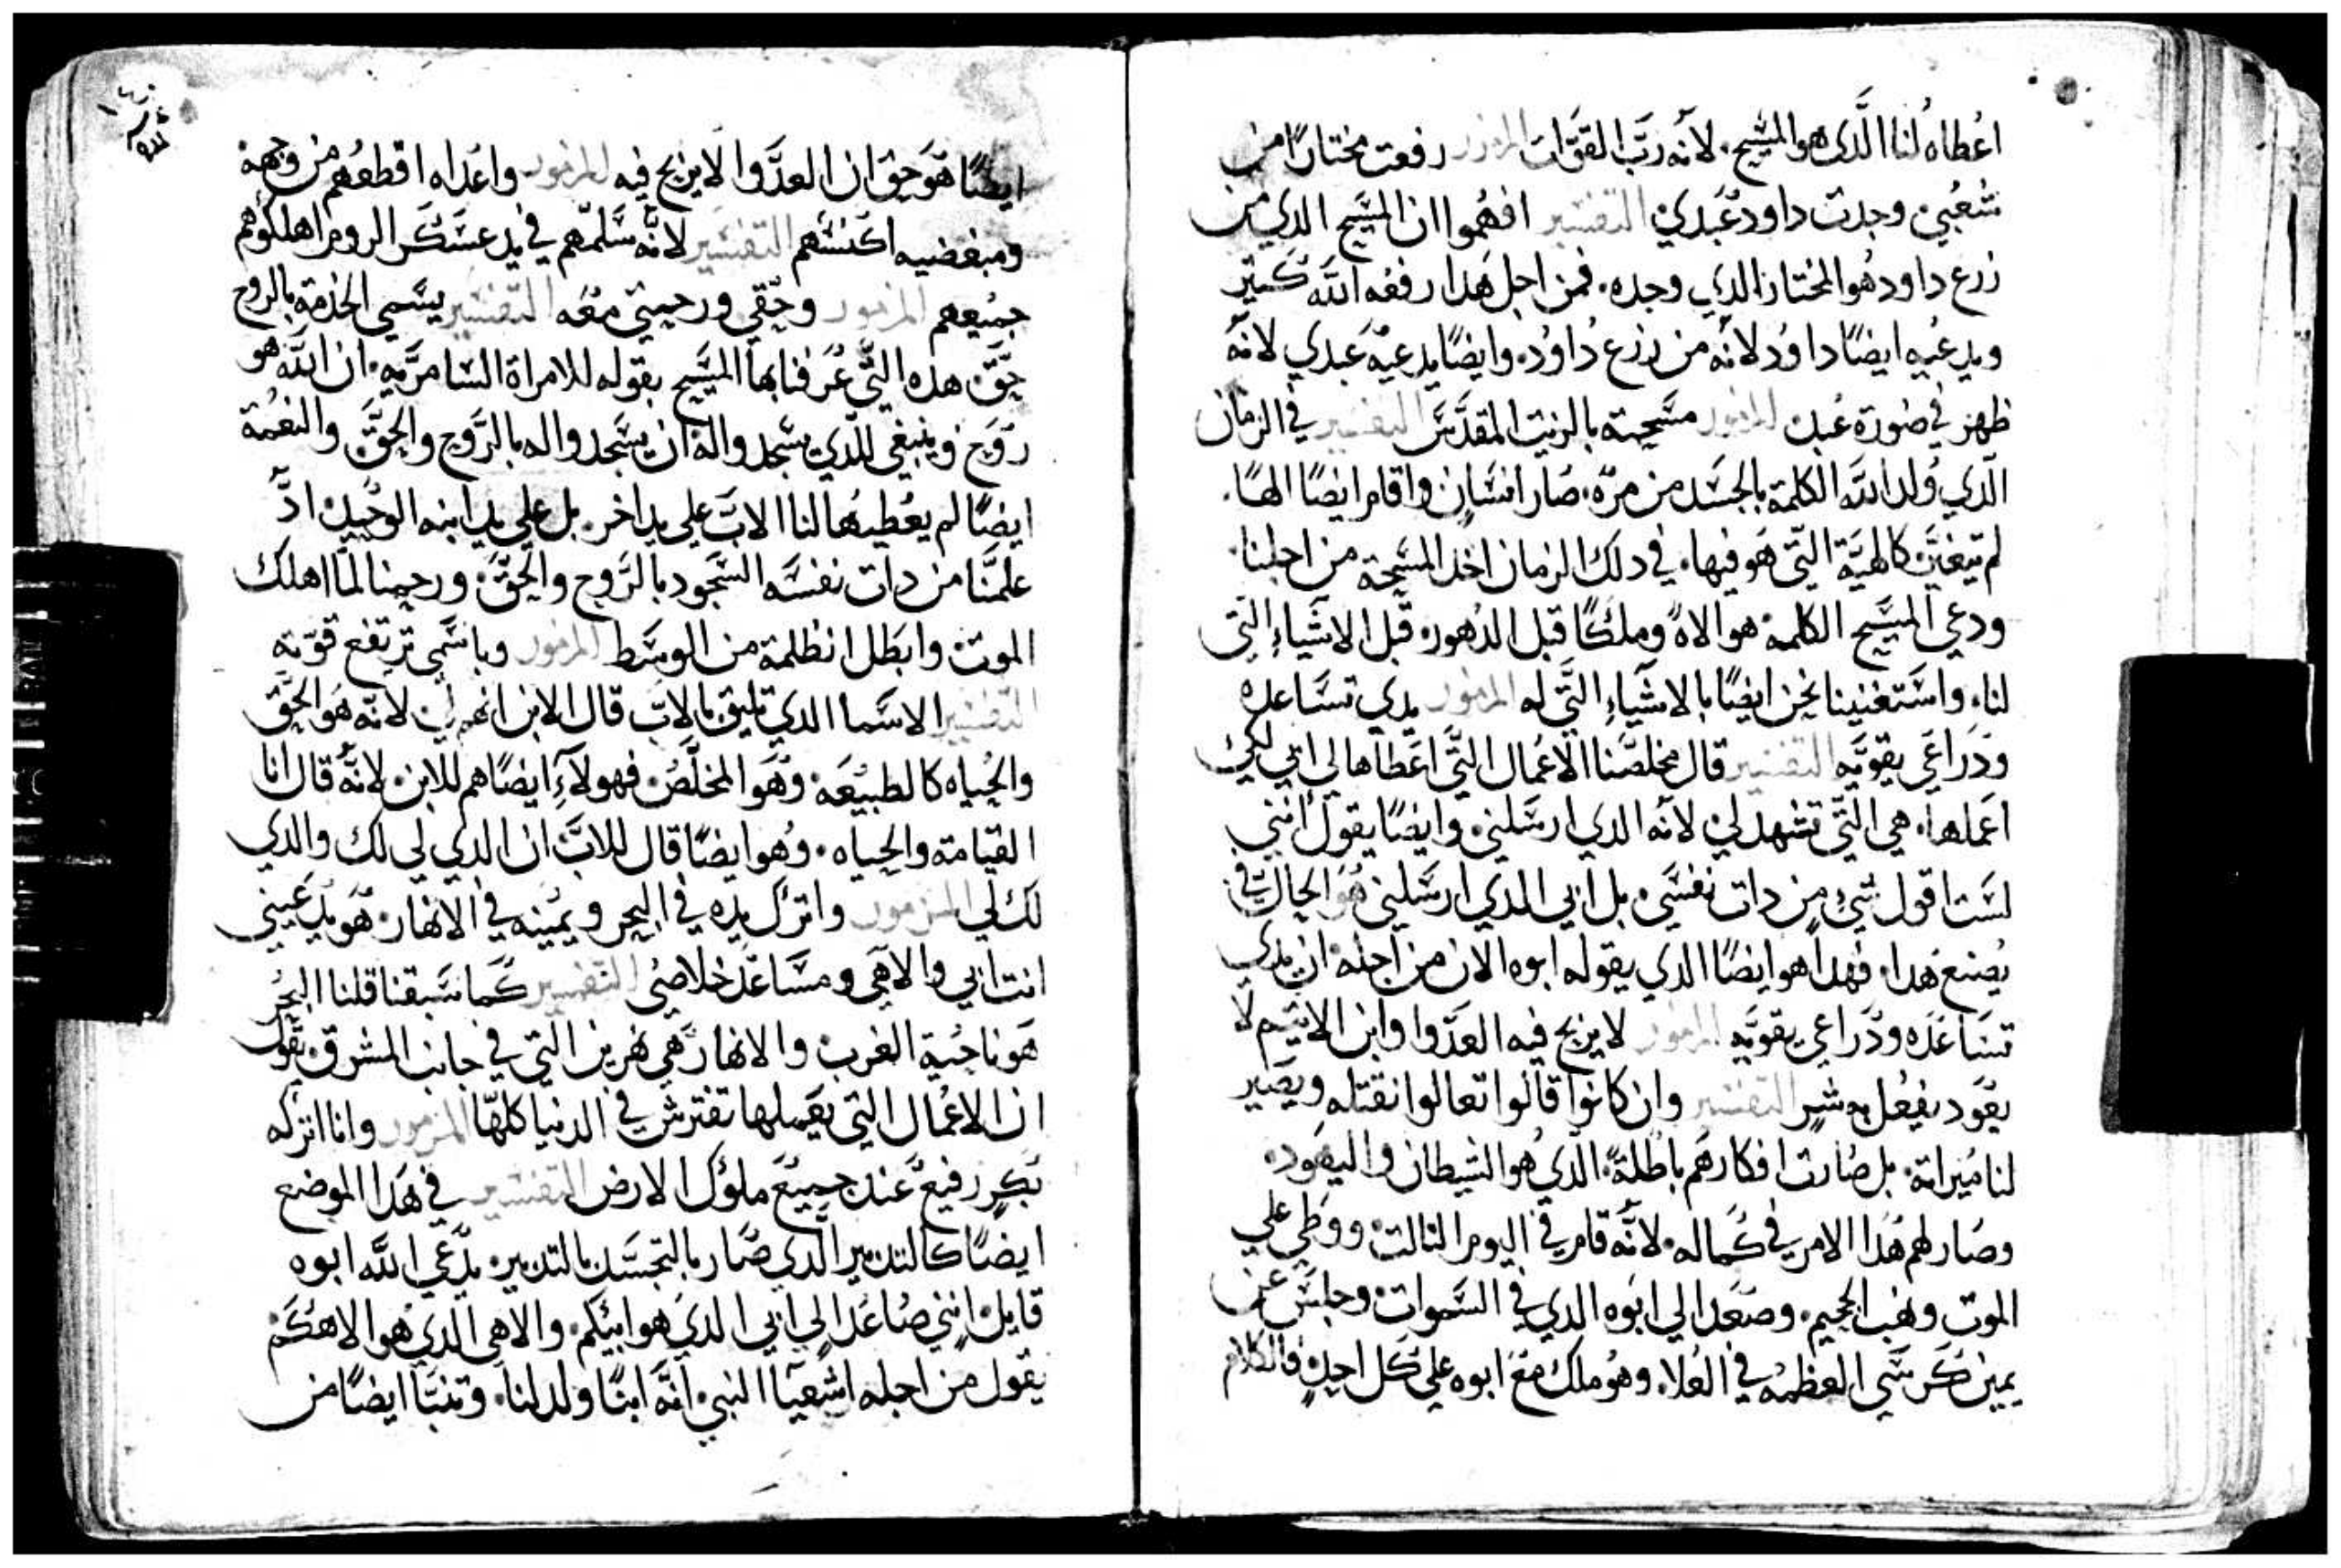 اعطاه لنا الدى هو المسيح. لانه رب القوات المزمور رفعت مختارًا من
شعبي وجدت داود عبدي التفسير افهموا ان المسيح الدي من
زرع داود هو المختار الدي وجده. فمن اجل هدا رفعه الله كتير
ويدعيه ايضًا داوود لانه من زرع داوود. وايضًا يدعيه عبدي لانه
ظهر في صورة عبد المزمور مسحته بالزيت المقدس التفسير في الزمان
الدي ولد الله الكلمة بالجسد من مره. صار انسان واقام ايضًا الهًا.
لم يتغير كالهية التي هو فيها. في دلك الزمان اخد المسحة من اجلنا.
ودعي المسيح الكلمة هو الاه وملكًا قبل الدهور. قبل الاشياء التي
لنا. واستغنينا نحن ايضًا بالاشياء التي له المزمور يدي تساعده
ودراعي يقويه التفسير قال مخلصنا الاعمال التي اعطاها لي ابي لكي
اعملها. هي التي تشهد لي لانه الدي ارسلني. وايضًا يقول انني
لست اقول شي من دات نفسي. بل ابي الدي ارسلني هو الحال في
يصنع هدا. فهدا هو ايضًا الدي يقوله ابوه الان من اجله. ان يدي
تساعده ودراعي يقويه المزمور لا يربح فيه العدوا وابن الاتيم لا
يعود يفعل به شر التفسير وان كانوا قالوا تعالوا نقتله ويصير
لنا ميراته. بل صارت افكارهم باطلة. الدي هو الشيطان واليهود.
وصار لهم هدا الامر في كماله. لانه قام في اليوم التالت. ووطي علي
الموت ونهب الجحيم. وصعد الي ابوه الدي في السموات. وجلس عن
يمين كرسي العظمه في العلا. وهو ملك مع ابوه علي كل احد. فالكلام
ايضًا هو حق ان العدوا لا يربح فيه المزمور واعداه اقطعهم من وجهه
ومبغضيه اكنسهم التفسير لانه سلمهم في يد عسكر الروم اهلكوهم
جميعهم المزمور وحقي ورحمتي معه التفسير يسمي الخدمة بالروح
حق. هده التي عرفنا بها المسيح بقوله للامراة السامريه. ان الله هو
روح وينبغي للدي يسجدوا له ان يسجدوا له بالروح والحق. والنعمة
ايضًا لم يعطيها لنا الاب علي يد اخر. بل علي يد ابنه الوحيد. اد
علمنا من دات نفسه السجود بالروح والحق. ورحمنا لما اهلك
الموت وابطل الظلمة من الوسط المزمور وباسمي ترتفع قوته
التفسير الاسما الدي تليق بالاب قال الابن انهم لي. لانه هو الحق
والحياه كالطبيعه. وهو المخلص. فهولاء ايضًا هم للابن. لانه قال انا
القيامة والحياه. وهو ايضًا قال للاب ان الدي لي لك والدي
لك لي المزمور واترك يده في البحر ويمينه في الانهار. هو يدعيني
انت ابي والاهي ومساعد خلاصي التفسير كما سبقنا قلنا البحر
هو ناحية الغرب. والانهار هي نهرين التي في جانب المشرق. يقول
ان الاعمال التي يعملها تفترش في الدنيا كلها المزمور وانا اتركه
بكر رفيع عند جميع ملوك الارض التفسير في هدا الموضع
ايضًا كالتدبير الدي صار بالتجسد بالتدبير. يدعي الله ابوه
قايل. انني صاعد الي ابي الدي هو ابيكم. والاهي الدي هو الاهكم
يقول من اجله اشعيا النبي. انه ابنًا ولد لنا. وتنبا ايضًا من